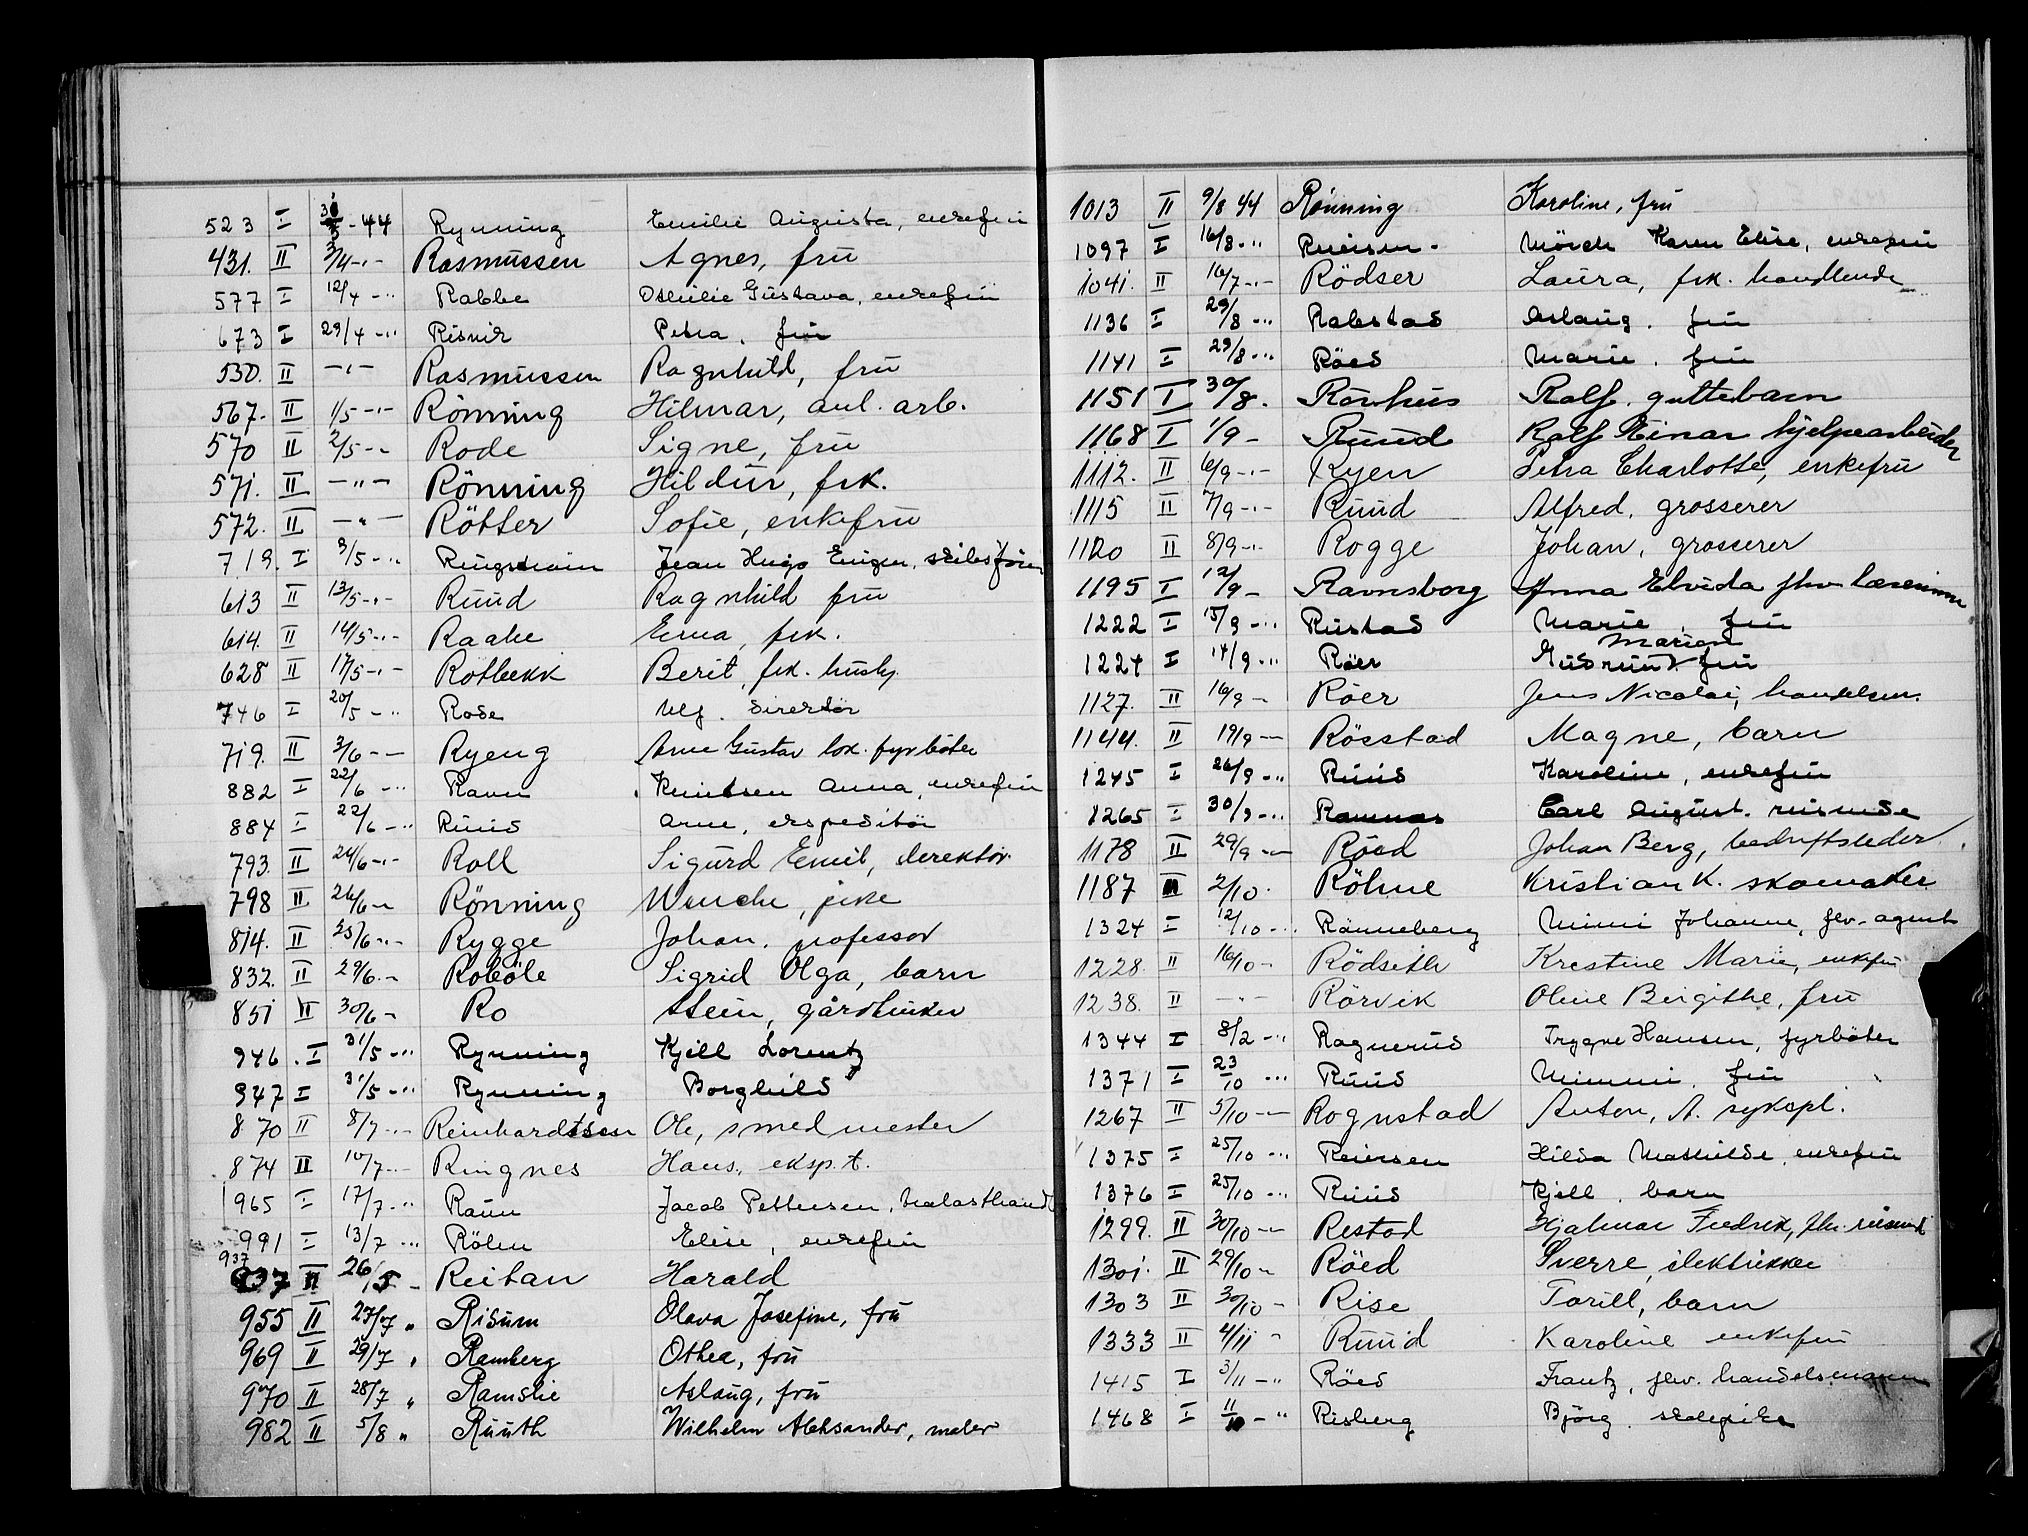 523 I 30/3 - 44 Rynning Emilie Augusta, enkefru
431. II 3/4 -"- Rasmussen Agnes, fru
577 I 12/4 -" Rabbe Othilie Gustava, enkefru
673 I 29/4 -" Risvik Petra, fru
530. II -"- Rasmussen Ragnhild, fru
567. II 1/5 -"- Rönning Hilmar, anl. arb.
570 II 2/5 -"- Rode Signe, fru
571. II -"- Rönning Hildur, frk.
572. II -"- Rötter Sofie, enkefru
719. I 9/5 -" Jean Hugo Eugen, skibsförer
613 II 13/5 -"- Ruud Ragnhild fru
614. II 14/5 -"- Raabe Erna, frk.
628 II 17/5 -"- Rotbekk Berit, frk. hush.
746 I 20/5 -" Rode Ulf. direktör
719. II 3/6 -- Ryeng Arne Gustav lok. fyrböter
882 I 22/6 -" Ravn Knutsen Anna, enkefru
884 I 22/6 -" Ruud Arne, ekspeditör
793. II 24/6 -"- Roll Sigurd Emil, direktör
798 II 26/6 - Rönning Wenche, pike
814. II 25/6 -"- Rygge Johan, professor
832. II 29/6. - Roböle Sigrid Olga, barn
851 II 30/6 - Ro Stein, gårdbruker
946. I 31/5 -" Rynning Kjell Lorentz
947 I 31/5 -" Rynning Borghild
870 II 8/7 -- Reinhardtsen Ole, smedmester
874 II 10/7 -- Ringnes Hans, eksp.t.
965 I 17/7 -" Raun Jacob Pettersen,
991 I 13/7 -" Rölen Elise, enkefru
937
937 II 26/5 - Reitan Harald
955 II 27/7 " Risum Olava Josefine, fru
969 II 29/7 " Ramberg Othea, fru
970 II 28/7 " Ramslie Aslaug, fru
982 II 5/8 " Ruuth Wilhelm Aleksander, maler
1013 II 9/8 44 Rönning Karoline, fru
1097 I 16/8 -" Mörch Karen Elise, enkefru
1041. II 16/7 -"- Rödser Laura, frk. handlende
1136 I 29/8 -" Rabstad Aslaug. fru
1141 I 29/8 -" Röed Marie. fru
1151 I 30/8. Rönhus Ralf. guttebarn
1168 I 1/9 - Ruud Ralf Einar hjelpearbeider
1112. II 6/9 -"- Ryen Petra Charlotte, enkefru
1115 II 7/9 -"- Ruud Alfred. grosserer
1120 II 8/9 -"- Rogge Johan, grosserer
1195 I 12/9 - Ravnsborg Anna Elvida fhv lærerinne
1222 I 15/9 -" Rustad Marie, fru
Marion
1224 I 14/9 -" Röer Gudrund fru
1127. II 16/9 - Röer Jens Nicolai, handelsm.
1144. II 19/9 -- Rösstad Magne, barn
1245 I 26/9 -" Ruud Karoline, enkefru
1265 I 30/9 -" Ramnas Carl August. reisende
1178 II 29/9 -- Röed Johan Berg, bedriftsleder
1187 II 2/10. Röhne Kristian K. skomaker
1324 I 12/10 -" Rönneberg Mimmi Johanne, fhv. agent
1228. II 16/10 - Rödseth Krestine Marie, enkefru
1238. II -"- Rörvik Oline Birgithe, fru
1344 I 8/2 -" Ragnerud Trygve Hansen, fyrböter
1371 I 23/10 -" Ruud Mimmi. fru
1267 II 5/10 -- Rognstad Anton, A. sykepl.
1375 I 25/10 -" Reiersen Hilda Mathilde, enkefru
1376 I 25/10 -" Ruud Kjell, barn
1299. II 30/10 -- Restad Hjalmar Fredrik, fhv. reisende
1301. II 29/10 - Röed Sverre, elektriker
1303 II 30/10 - Rise Torill, barn
1333 II 4/11 - Ruud Karoline enkefru
1415 I 3/11 -" Röed Frantz, fhv. handelsmann
1468 I 11/10 -" Risberg Björg. skolepike